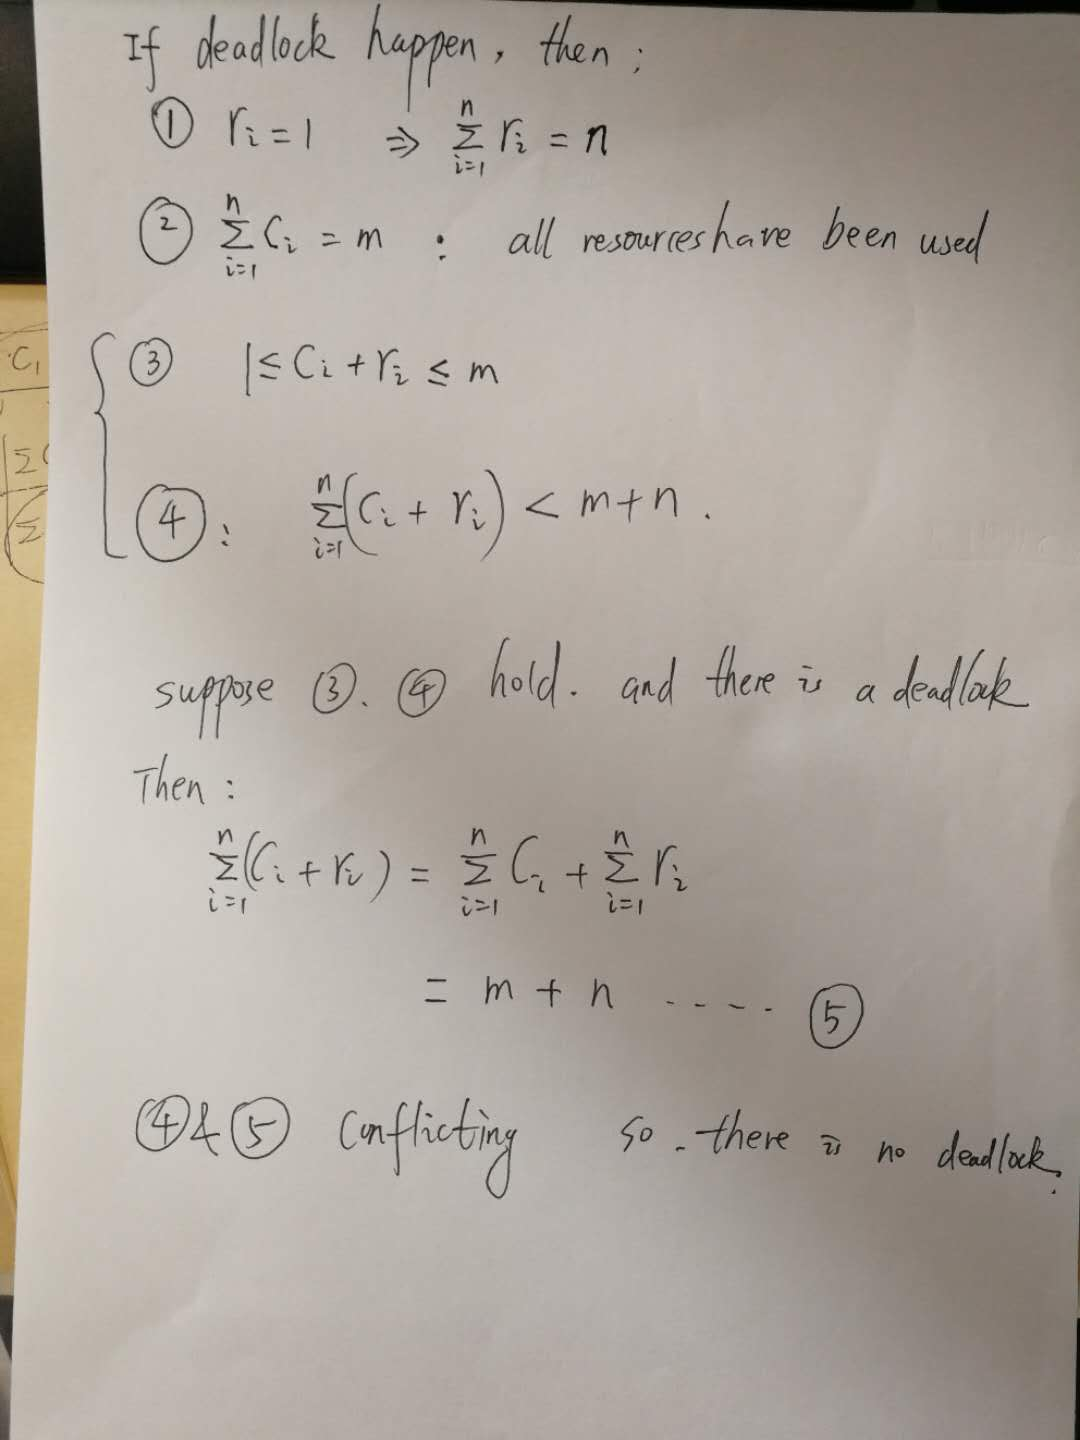 If deadlock happen, then:
① rᵢ = 1 ⇒ ∑ⁿᵢ₌₁ rᵢ = n
② ∑ⁿᵢ₌₁ Cᵢ = m : all resources have been used
③ 1 ≤ Cᵢ + rᵢ ≤ m
④: ∑ⁿᵢ₌₁ (Cᵢ + rᵢ) < m+n.
suppose ③. ④ hold. and there is a deadlock
Then:
∑ⁿᵢ₌₁ (Cᵢ + rᵢ) = ∑ⁿᵢ₌₁ Cᵢ + ∑ⁿᵢ₌₁ rᵢ
= m + n ---- ⑤
④ & ⑤ conflicting so. there is no deadlock.